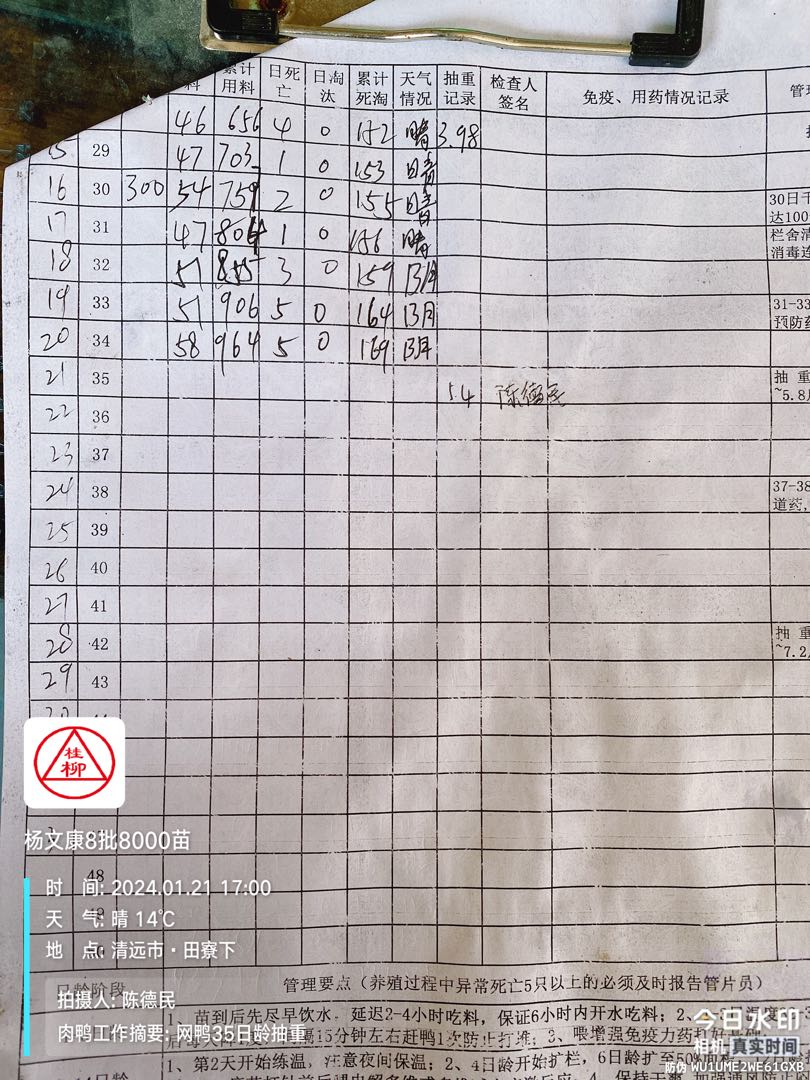 料 累计用料 日死亡 日淘汰 累计死淘 天气情况 抽重记录 检查人签名 免疫、用药情况记录
46 656 4 0 152 晴 3.98
15 29 47 703 1 0 153 晴
16 30 300 54 759 2 0 155 晴
30日
达100
17 31 47 804 1 0 156 晴
栏舍清
消毒连
18 32 51 855 3 0 159 阴
19 33 51 906 5 0 164 阴
31-33
预防药
20 34 58 964 5 0 169 阴
21 35 5.4 陈德民
抽 重
~5.8
22 36
23 37
24 38
37-38
道药,
25 39
26 40
27 41
28 42
抽 重
~7.2
29 43
桂柳
杨文康8批8000苗
48
时 间: 2024.01.21 17:00
天 气: 晴 14℃
地 点: 清远市·田寮下
日龄阶段 管理要点（养殖过程中异常死亡5只以上的必须及时报告管片员）
拍摄人: 陈德民
1、苗到后先尽早饮水，延迟2-4小时吃料，保证6小时内开水吃料；2、
肉鸭工作摘要: 网鸭35日龄抽重
15分钟左右赶鸭1次防止打堆；3、喂增强免疫力药
1、第2天开始练温，注意夜间保温；2、4日龄开始扩栏，6日龄扩至50%
今日水印
相机 真实时间
防伪 WU1UME2WE61GXB